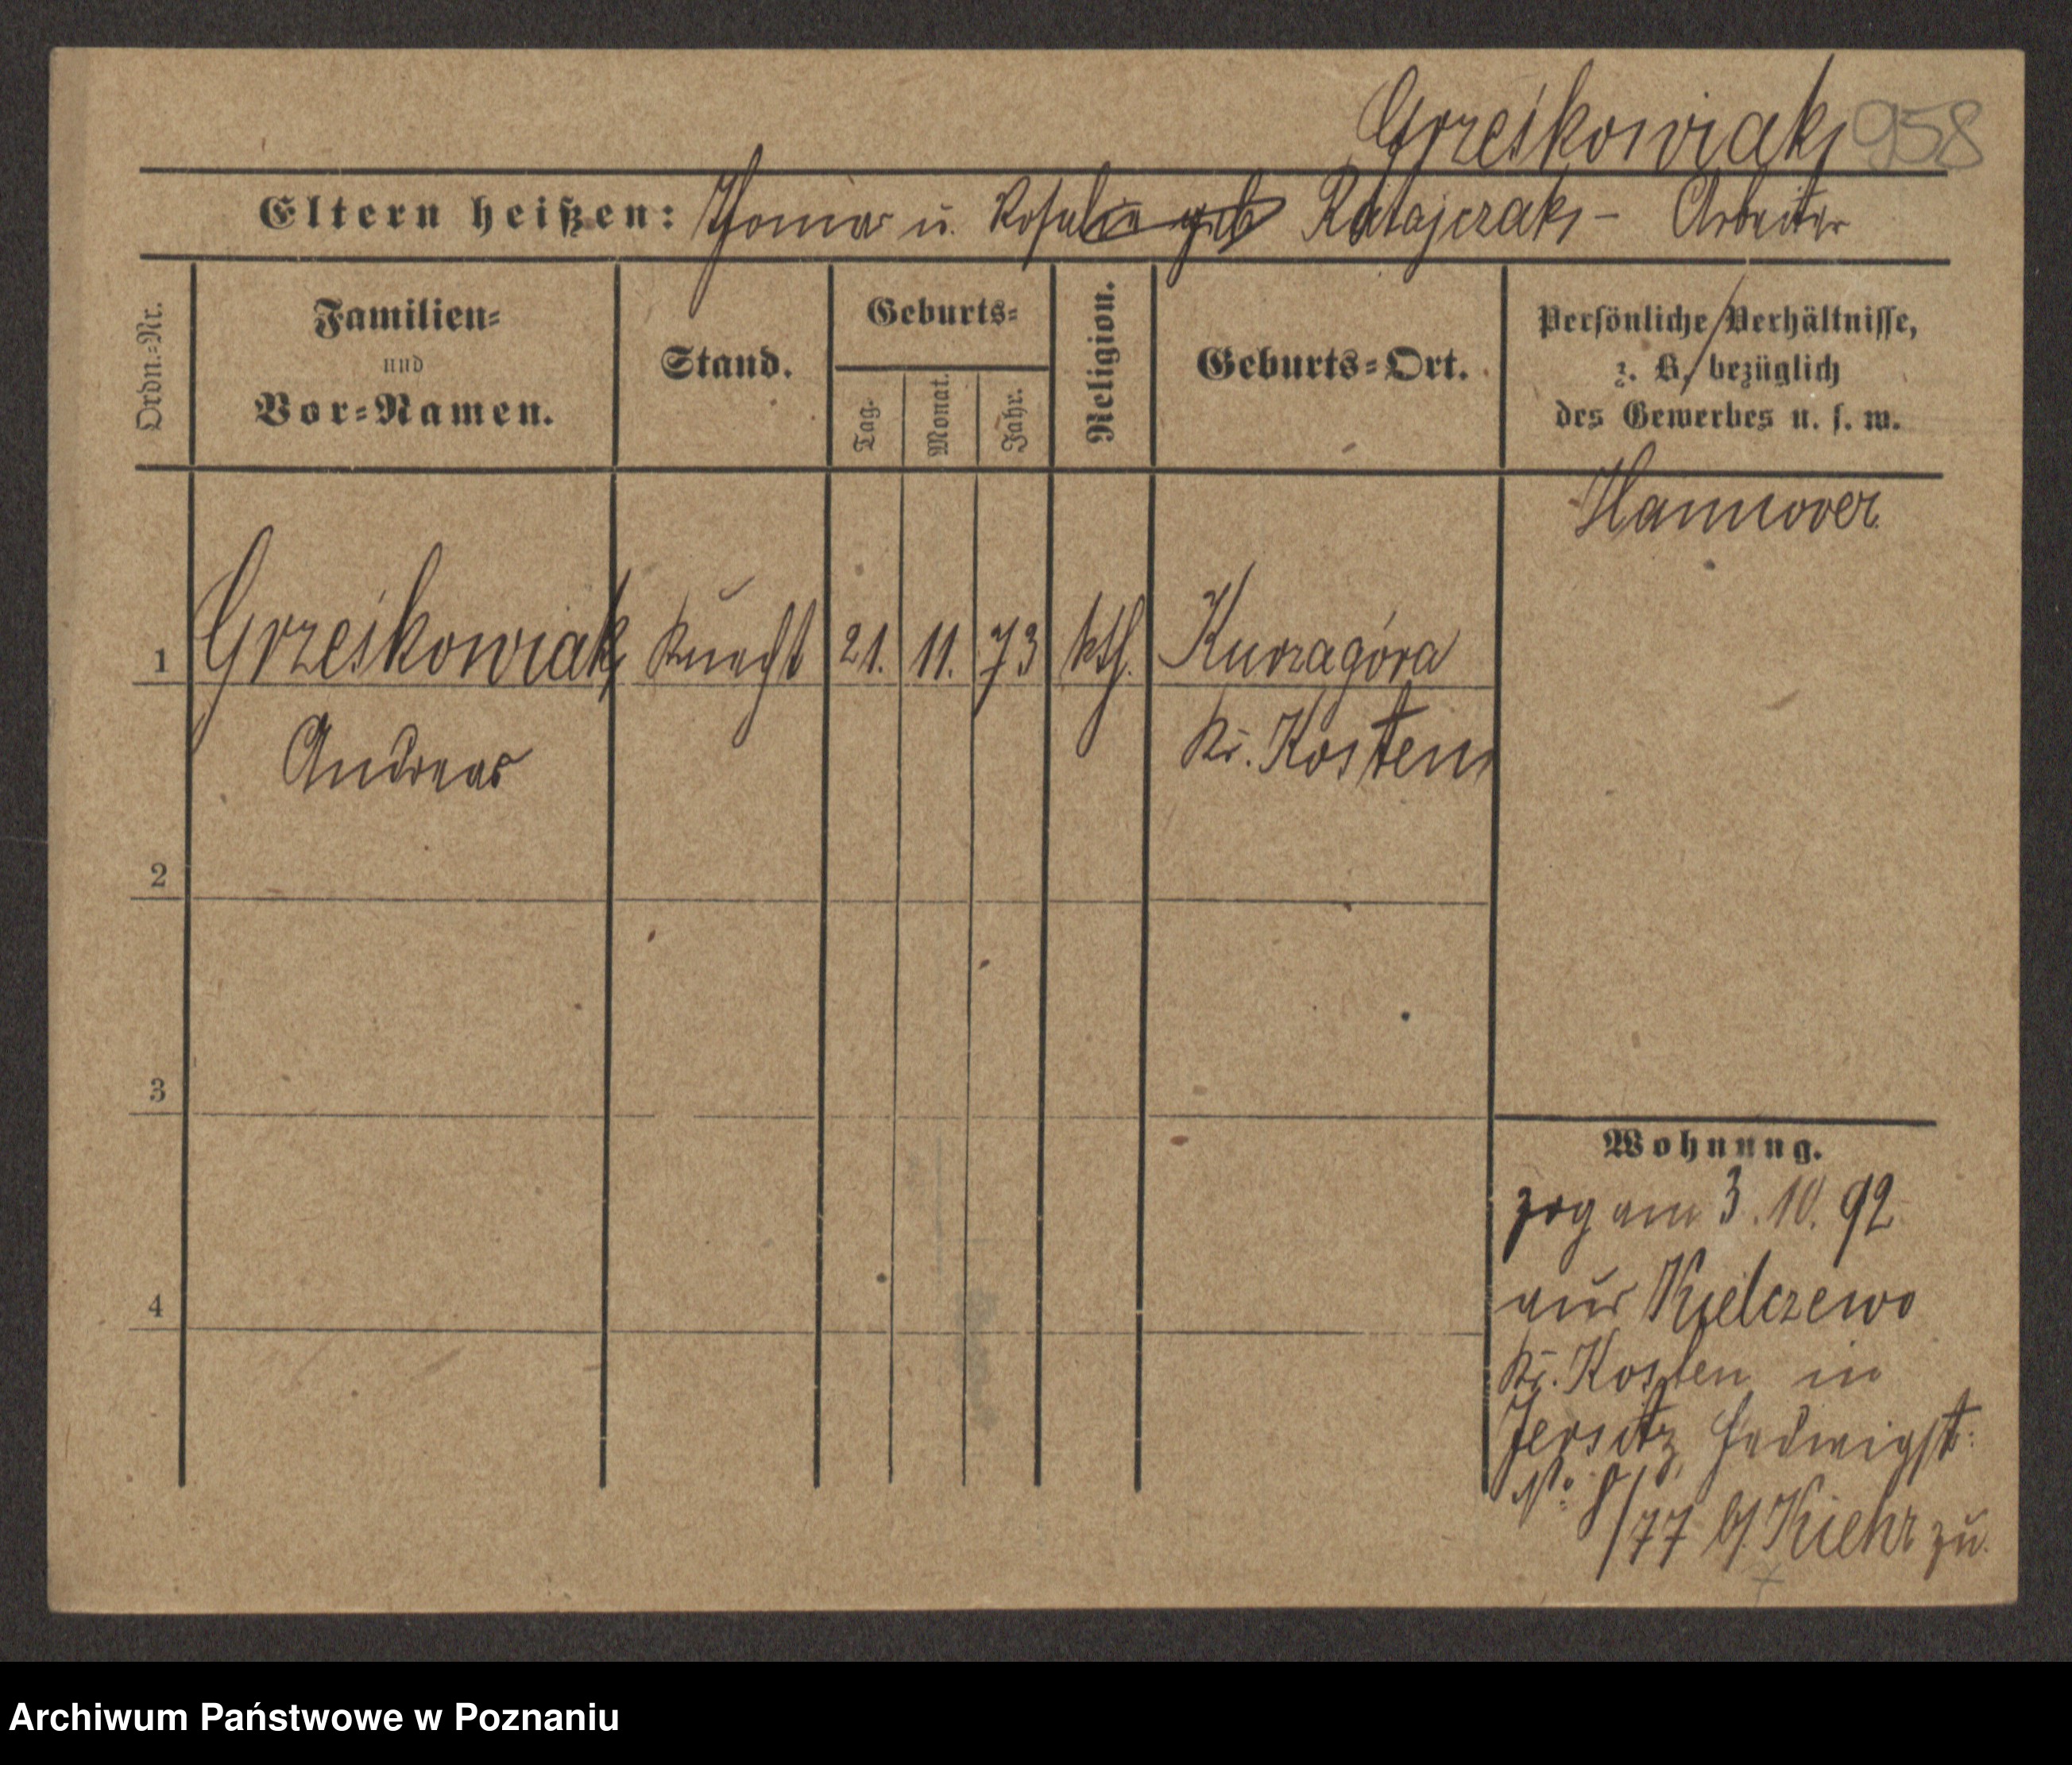 Grześkowiak 958
Eltern heißen: Thomas u. Rosalie geb Ratajczak - Arbeiter
Ordn.-Nr.
Familien-
und
Vor-Namen.
Stand.
Geburts-
Tag.
Monat.
Jahr.
Religion.
Geburts-Ort.
Persönliche Verhältnisse,
z. B. bezüglich
des Gewerbes u. s. w.
Hannover
1 Grześkowiak Knecht 21. 11. 73 kth. Kurzagóra
Andreas Kr. Kosten
2
3
4
Wohnung.
zog am 3.10.92
aus Kielczewo
Kr. Kosten in
Jersitz, Hedwigst:
No: 8/77 b/. Kiehr zu.
Archiwum Państwowe w Poznaniu